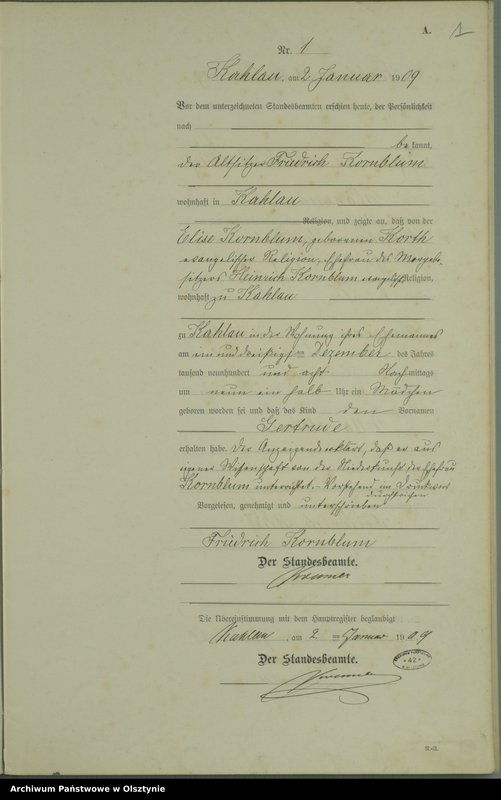 A. 1
Nr. 1
Kahlau, am 2 Januar 1909
Vor dem unterzeichneten Standesbeamten erschien heute, der Persönlichkeit
nach
bekannt,
der Altsitzer Friedrich Kornblum
wohnhaft in Kahlau
Religion, und zeigte an, daß von der
Elise Kornblum, geborenen Korth
evangelischer Religion, Ehefrau des
sitzers Heinrich Kornblum Religion,
wohnhaft zu Kahlau
zu Kahlau in der Wohnung ihres Ehemannes
am ein und dreißigsten Dezember des Jahres
tausend neunhundert und acht Nachmittags
um neun ein halb Uhr ein Mädchen
geboren worden sei und daß das Kind den Vornamen
Gertrude
erhalten habe. Der Anzeigende erklärt, daß er aus
eigener Wissenschaft von der Niederkunft der Ehefrau
Kornblum unterrichtet. - Vorstehend im Druckwort
durchstrichen
Vorgelesen, genehmigt und unterschrieben
Friedrich Kornblum
Der Standesbeamte.
Die Übereinstimmung mit dem Hauptregister beglaubigt
Kahlau, am 2 Januar 1909
Der Standesbeamte.
42
Archiwum Państwowe w Olsztynie